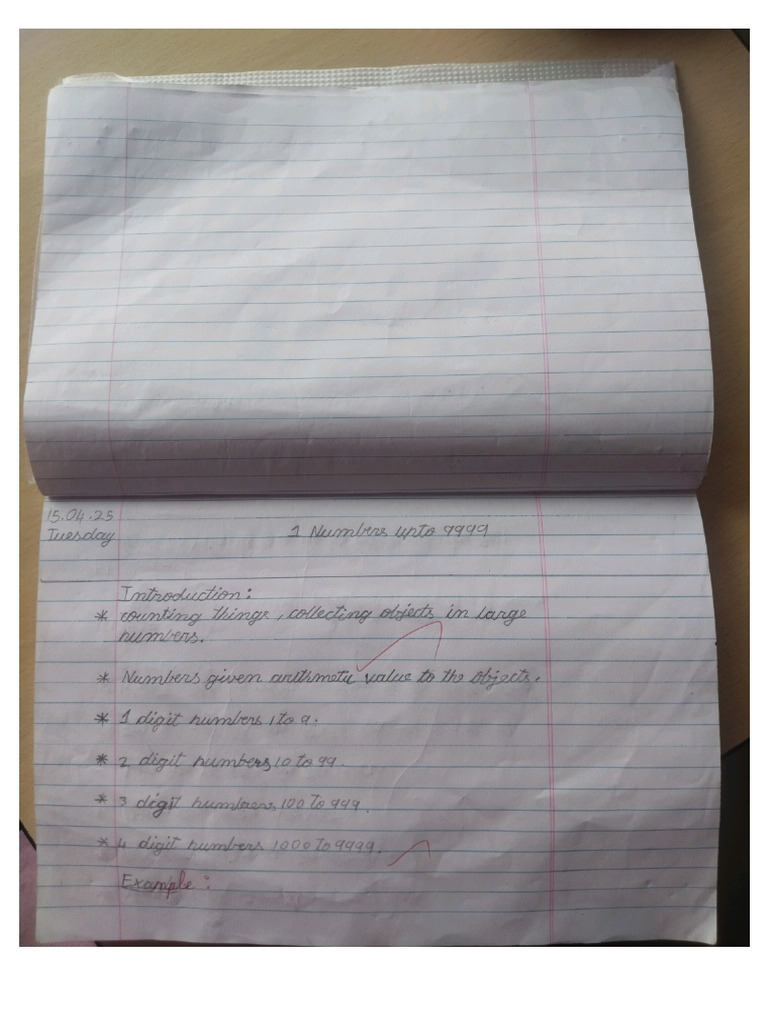 15.04.25
Tuesday
1 Numbers upto 9999
Introduction:
* counting things, collecting objects in large
numbers.
* Numbers given arithmetic value to the objects.
* 1 digit numbers 1 to 9.
* 2 digit numbers 10 to 99.
* 3 digit numbers 100 to 999.
* 4 digit numbers 1000 to 9999.
Example: